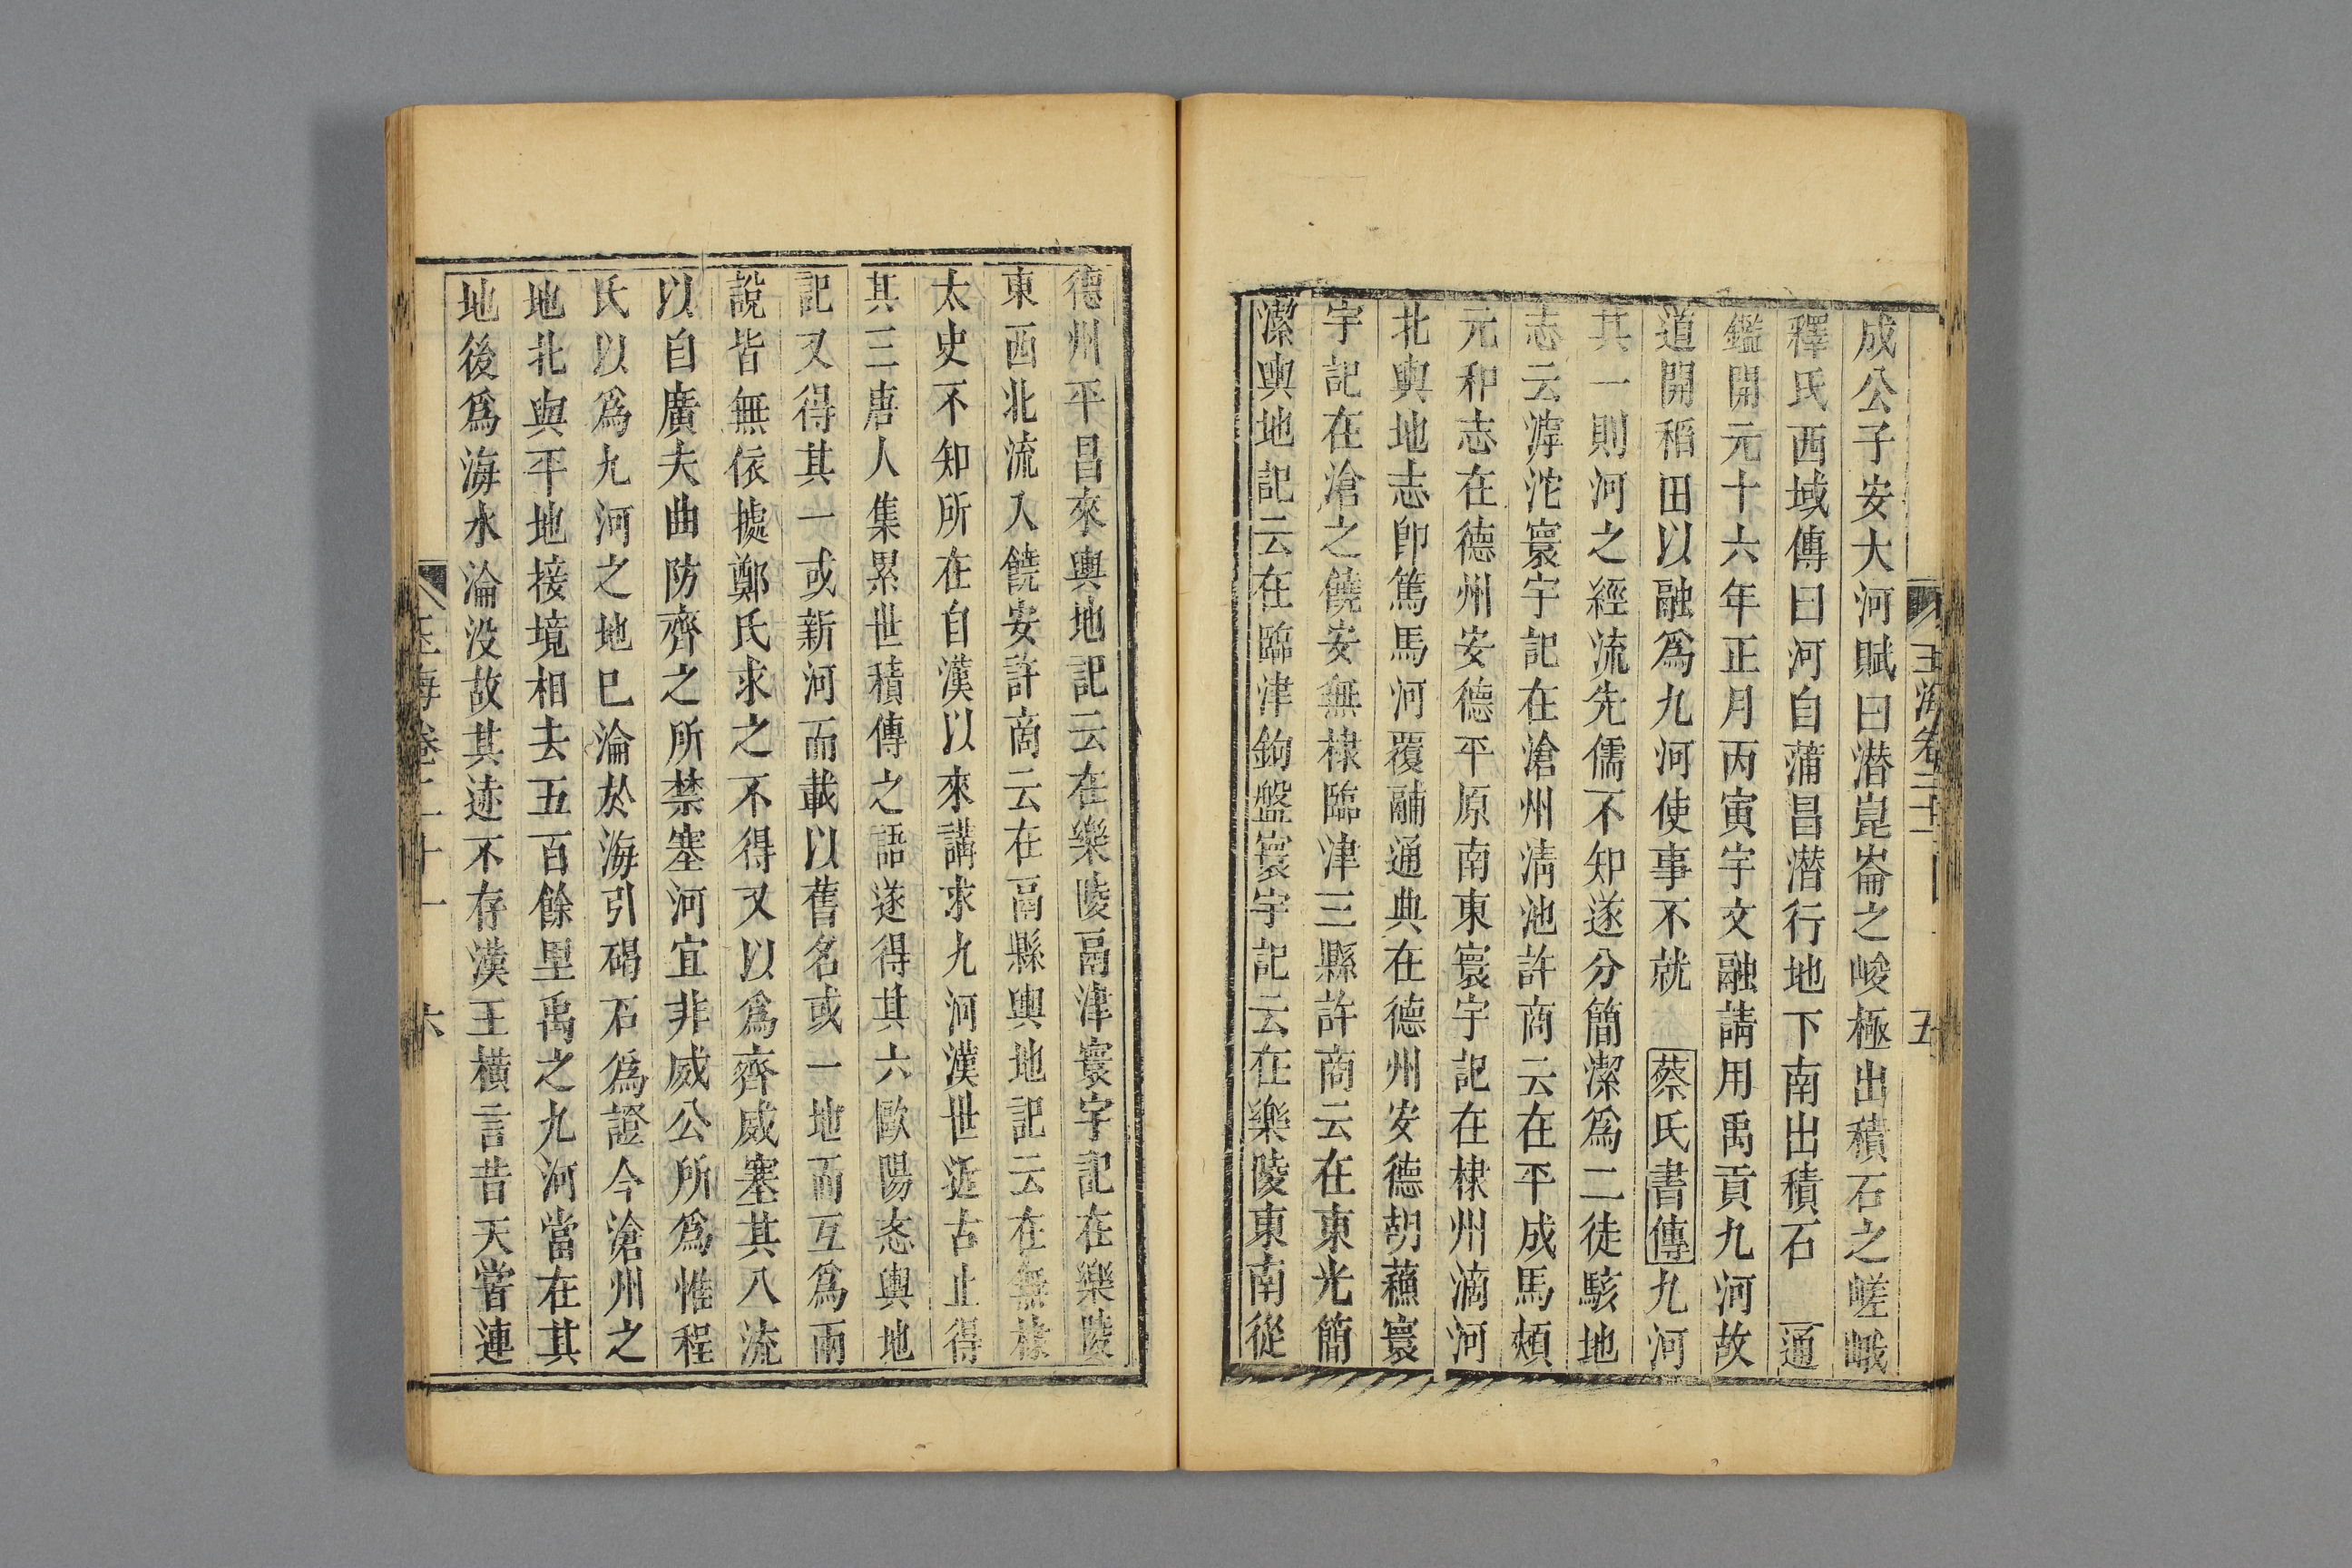 成公子安大河賦曰潜崑崙之峻極出積石之嵯峨
釋氏西域傳曰河自蒲昌潜行地下南出積石　通
鑑開元十六年正月丙寅宇文融請用禹貢九河故
道開稻田以融爲九河使事不就　蔡氏書傳九河
其一則河之經流先儒不知遂分簡潔爲二徒駭地
志云滹沱寰宇記在滄州清池許商云在平成馬頰
元和志在德州安德平原南東寰宇記在棣州滴河
北輿地志卽篤馬河覆鬴通典在德州安德胡蘓寰
宇記在滄之饒安無棣臨津三縣許商云在東光簡
潔輿地記云在臨津鉤盤寰宇記云在樂陵東南從
德州平昌來輿地記云在樂陵鬲津寰宇記在樂陵
東西北流入饒安許商云在鬲縣輿地記云在無棣
太史不知所在自漢以來講求九河漢世近古止得
其三唐人集累世積傳之語遂得其六歐陽忞輿地
記又得其一或新河而載以舊名或一地而互爲兩
說皆無依據鄭氏求之不得又以爲齊威塞其八流
以自廣夫曲防齊之所禁塞河宜非威公所爲惟程
氏以爲九河之地已淪於海引碣石爲證今滄州之
地北與平地接境相去五百餘里禹之九河當在其
地後爲海水淪没故其迹不存漢王橫言昔天嘗連
玉海卷二十一
六